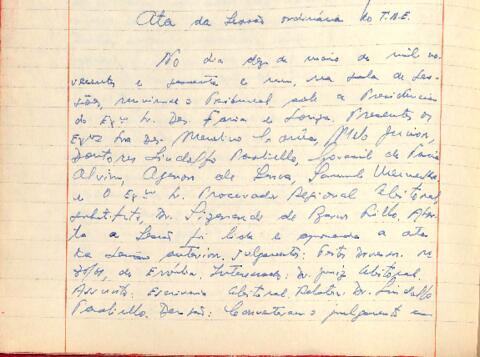 Ata da Sessão ordinária do T.R.E.
No dia dez de maio de mil no-
vecentos e sessenta e um, na sala de Ses-
sões, reuniu-se o Tribunal sob a Presidência
do Exmo Sr. Des. Faria e Souza. Presentes os
Exmos Srs Des. Merolino Corrêa, Melo Junior,
Doutores Lindolfo Paoliello, de Faria
Alvim, Agenor de Sena,
e O Exmo Sr. Procurador Regional Eleitoral,
substituto, Dr. de Barros Aber-
ta a Sessão foi lida e aprovada a ata
da Sessão anterior. Julgamentos: Feitos Diversos. nº
de Ervália. Interessado: Dr. Juiz Eleitoral.
Assunto: Escrivania Eleitoral. Relator: Dr. Lindolfo
Paoliello. Decisão: Converteram o julgamento em